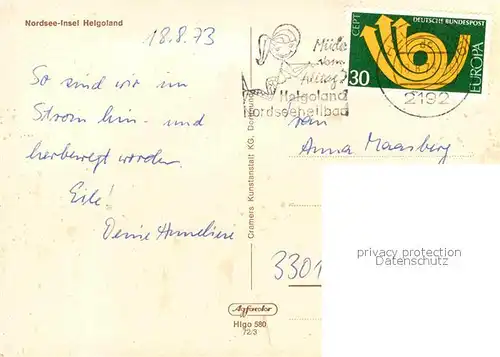 Nordsee-Insel Helgoland
18.8.73
So sind wir im
Strom hin- und
herbewegt worden.
Eile!
Deine Anneliese
Cramers Kunstanstalt KG, Dortmund
Agfacolor
Higo 580
72/3
Müde
vom
Alltag?
Helgoland
Nordseeheilbad
CEPT
DEUTSCHE BUNDESPOST
30
EUROPA
2192
Anna Maasberg
3301
privacy protection
Datenschutz